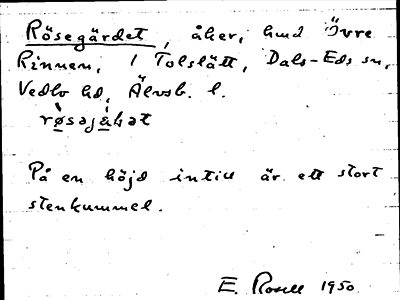 Rösegärdet, åker, hmd Övre
Rinnen, 1 Tolslätt, Dals-Eds sn,
Vedbo hd, Älvsb. l.
På en höjd intill är ett stort
stenkummel.
E. Rosell 1950.